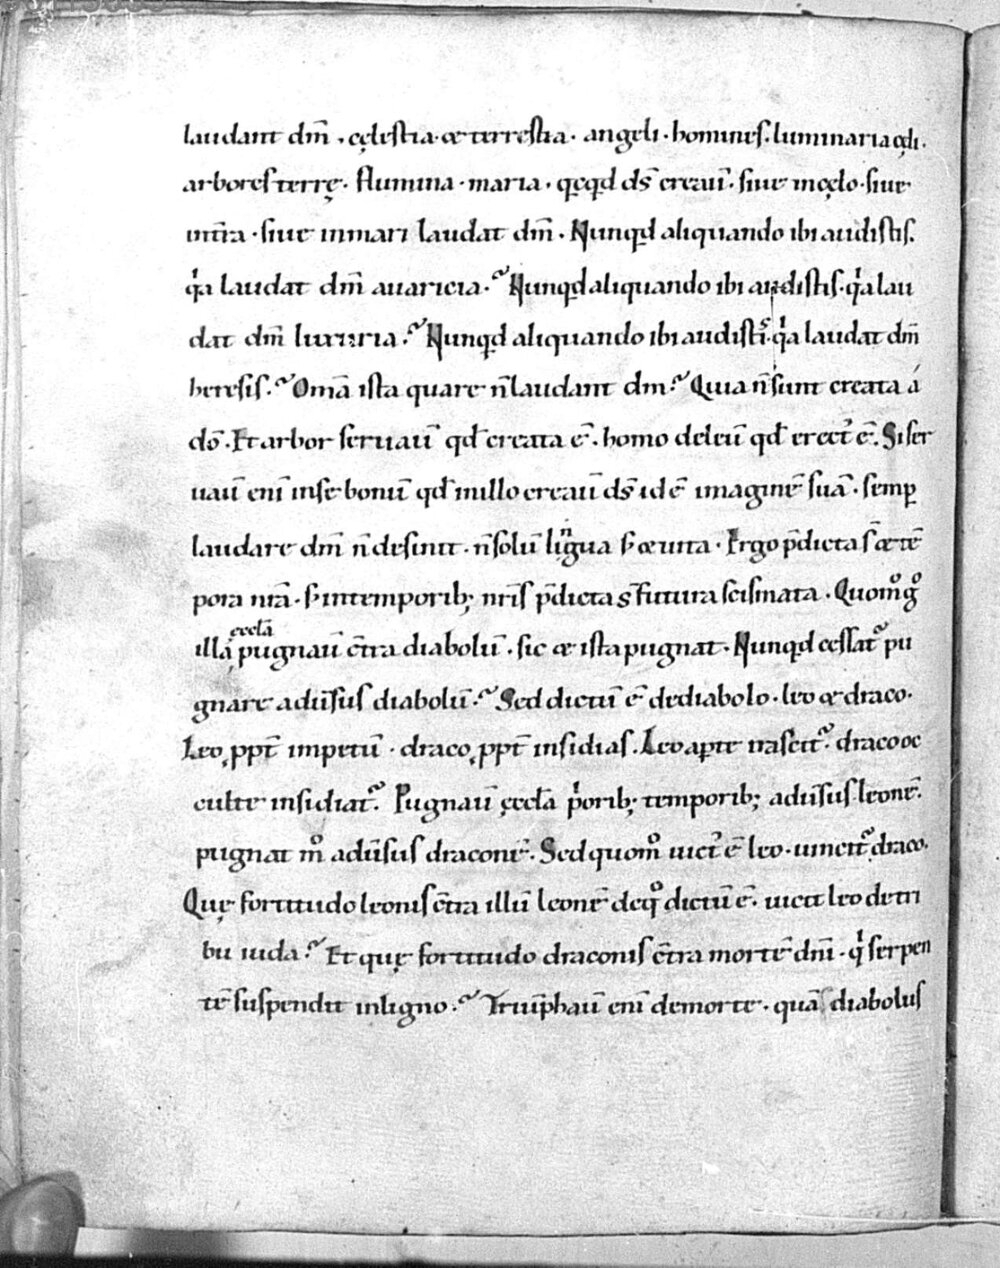 laudant dm̄ · cęlestia · & terrestria · angeli · homines · luminaria cęli ·
arbores terrę · flumina · maria · qͥcqͥd ds̄ creauit̄ · siue in cęlo · siue
in tr̄ra · siue in mari laudat dm̄ · Nunqͥd aliquando ibi audistis ·
qͥa laudat dm̄ auaricia · Nunqͥd aliquando ibi audistis · qͥa lau
dat dm̄ luxuria · Nunqͥd aliquando ibi audistis qͥa laudat dm̄
heresis · Om̄a ista quare n̄ laudant dm̄ · Quia n̄ sunt creata á
dō · Et arbor seruauit̄ qd̄ creata ē · homo deleuit̄ qd̄ erectꝰ ē · Si ser
uauit̄ enī in se bonū qd̄ in illo creauit̄ ds̄ id ē imaginē suā · semꝑ
laudare dm̄ n̄ desinit · n̄ solū lingua s; & uita · Ergo p̄dicta s̄ & tē
pora nr̄a · s; in temporib; nr̄is p̄dicta s̄ futura scismata · Quomͦ gͦ
illa ęccła pugnauit̄ c̄tra diabolū · sic & ista pugnat · Nunqͥd cessat pu
gnare aduer̄sus diabolū · Sed dictū ē de diabolo · leo & draco ·
Leo ꝓpt̄ impetū · draco ꝓpt̄ insidias · Leo aꝑte irascit᷑ · draco oc
culte insidiat᷑ · Pugnauit̄ ęccła pͥorib; temporib; aduer̄sus leonē ·
pugnat mͦ aduer̄sus draconē · Sed quomͦ uictꝰ ē leo · uincit᷑ draco ·
Quę fortitudo leonis c̄tra illū leonē de qͦ dictū ē · uicit leo de tri
bu iuda · Et quę fortitudo draconis c̄tra mortē dnī · qͥ serpen
tē suspendit in ligno · Triūphauit̄ enī de morte · quā diabolus